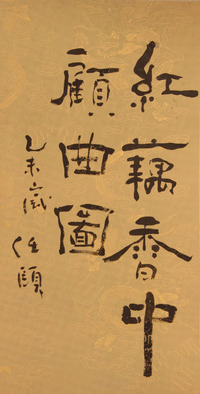 紅藕香中
顧曲圖
乙未歲任頤